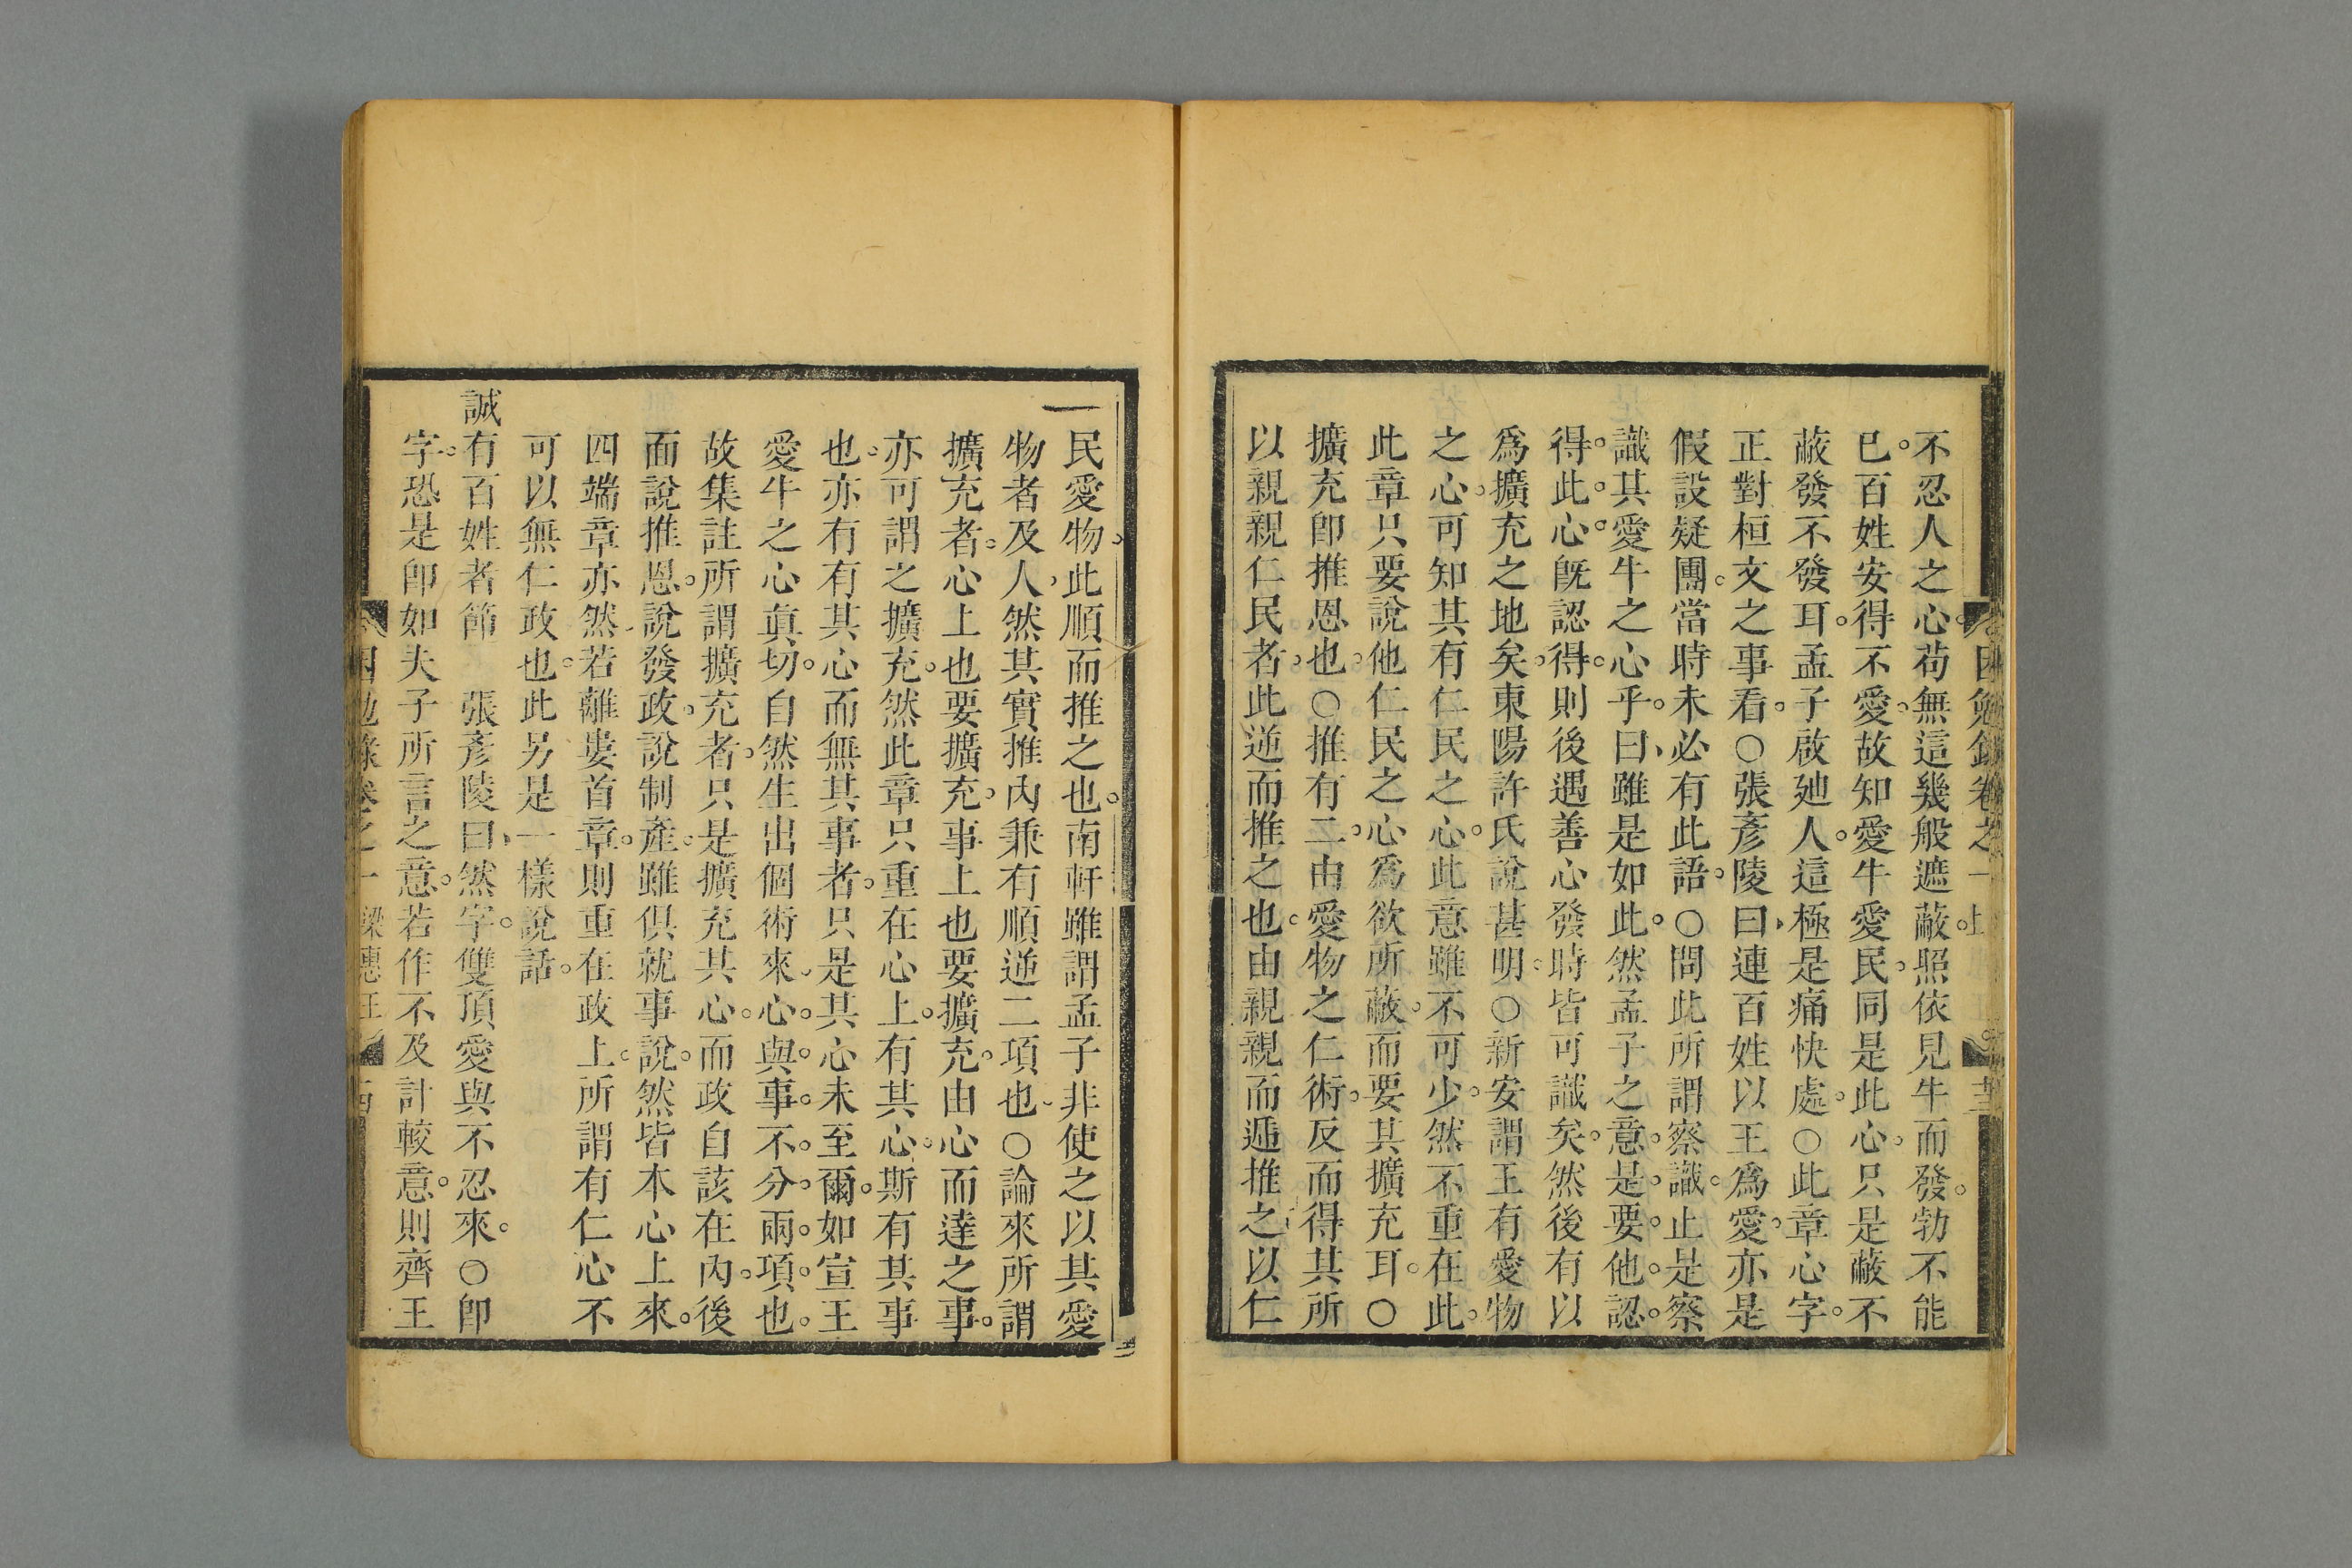 不忍人之心苟無這幾般遮蔽照依見牛而發勃不能
已百姓安得不愛故知愛牛愛民同是此心只是蔽不
蔽發不發耳孟子啟廸人這極是痛快處○此章心字
正對桓文之事看○張彥陵曰連百姓以王爲愛亦是
假設疑團當時未必有此語○問此所謂察識止是察
識其愛牛之心乎曰雖是如此然孟子之意是要他認
得此心旣認得則後遇善心發時皆可識矣然後有以
爲擴充之地矣東陽許氏說甚明○新安謂王有愛物
之心可知其有仁民之心此意雖不可少然不重在此
此章只要說他仁民之心爲欲所蔽而要其擴充耳○
擴充卽推恩也○推有二由愛物之仁術反而得其所
以親親仁民者此逆而推之也由親親而遞推之以仁
民愛物此順而推之也南軒雖謂孟子非使之以其愛
物者及人然其實推內兼有順逆二項也○論來所謂
擴充者心上也要擴充事上也要擴充由心而達之事
亦可謂之擴充然此章只重在心上有其心斯有其事
也亦有有其心而無其事者只是其心未至爾如宣王
愛牛之心眞切自然生出個術來心與事不分兩項也
故集註所謂擴充者只是擴充其心而政自該在內後
面說推恩說發政說制產雖俱就事說然皆本心上來
四端章亦然若離婁首章則重在政上所謂有仁心不
可以無仁政也此另是一樣說話
誠有百姓者節　張彥陵曰然字雙頂愛與不忍來○卽
字恐是卽如夫子所言之意若作不及計較意則齊王